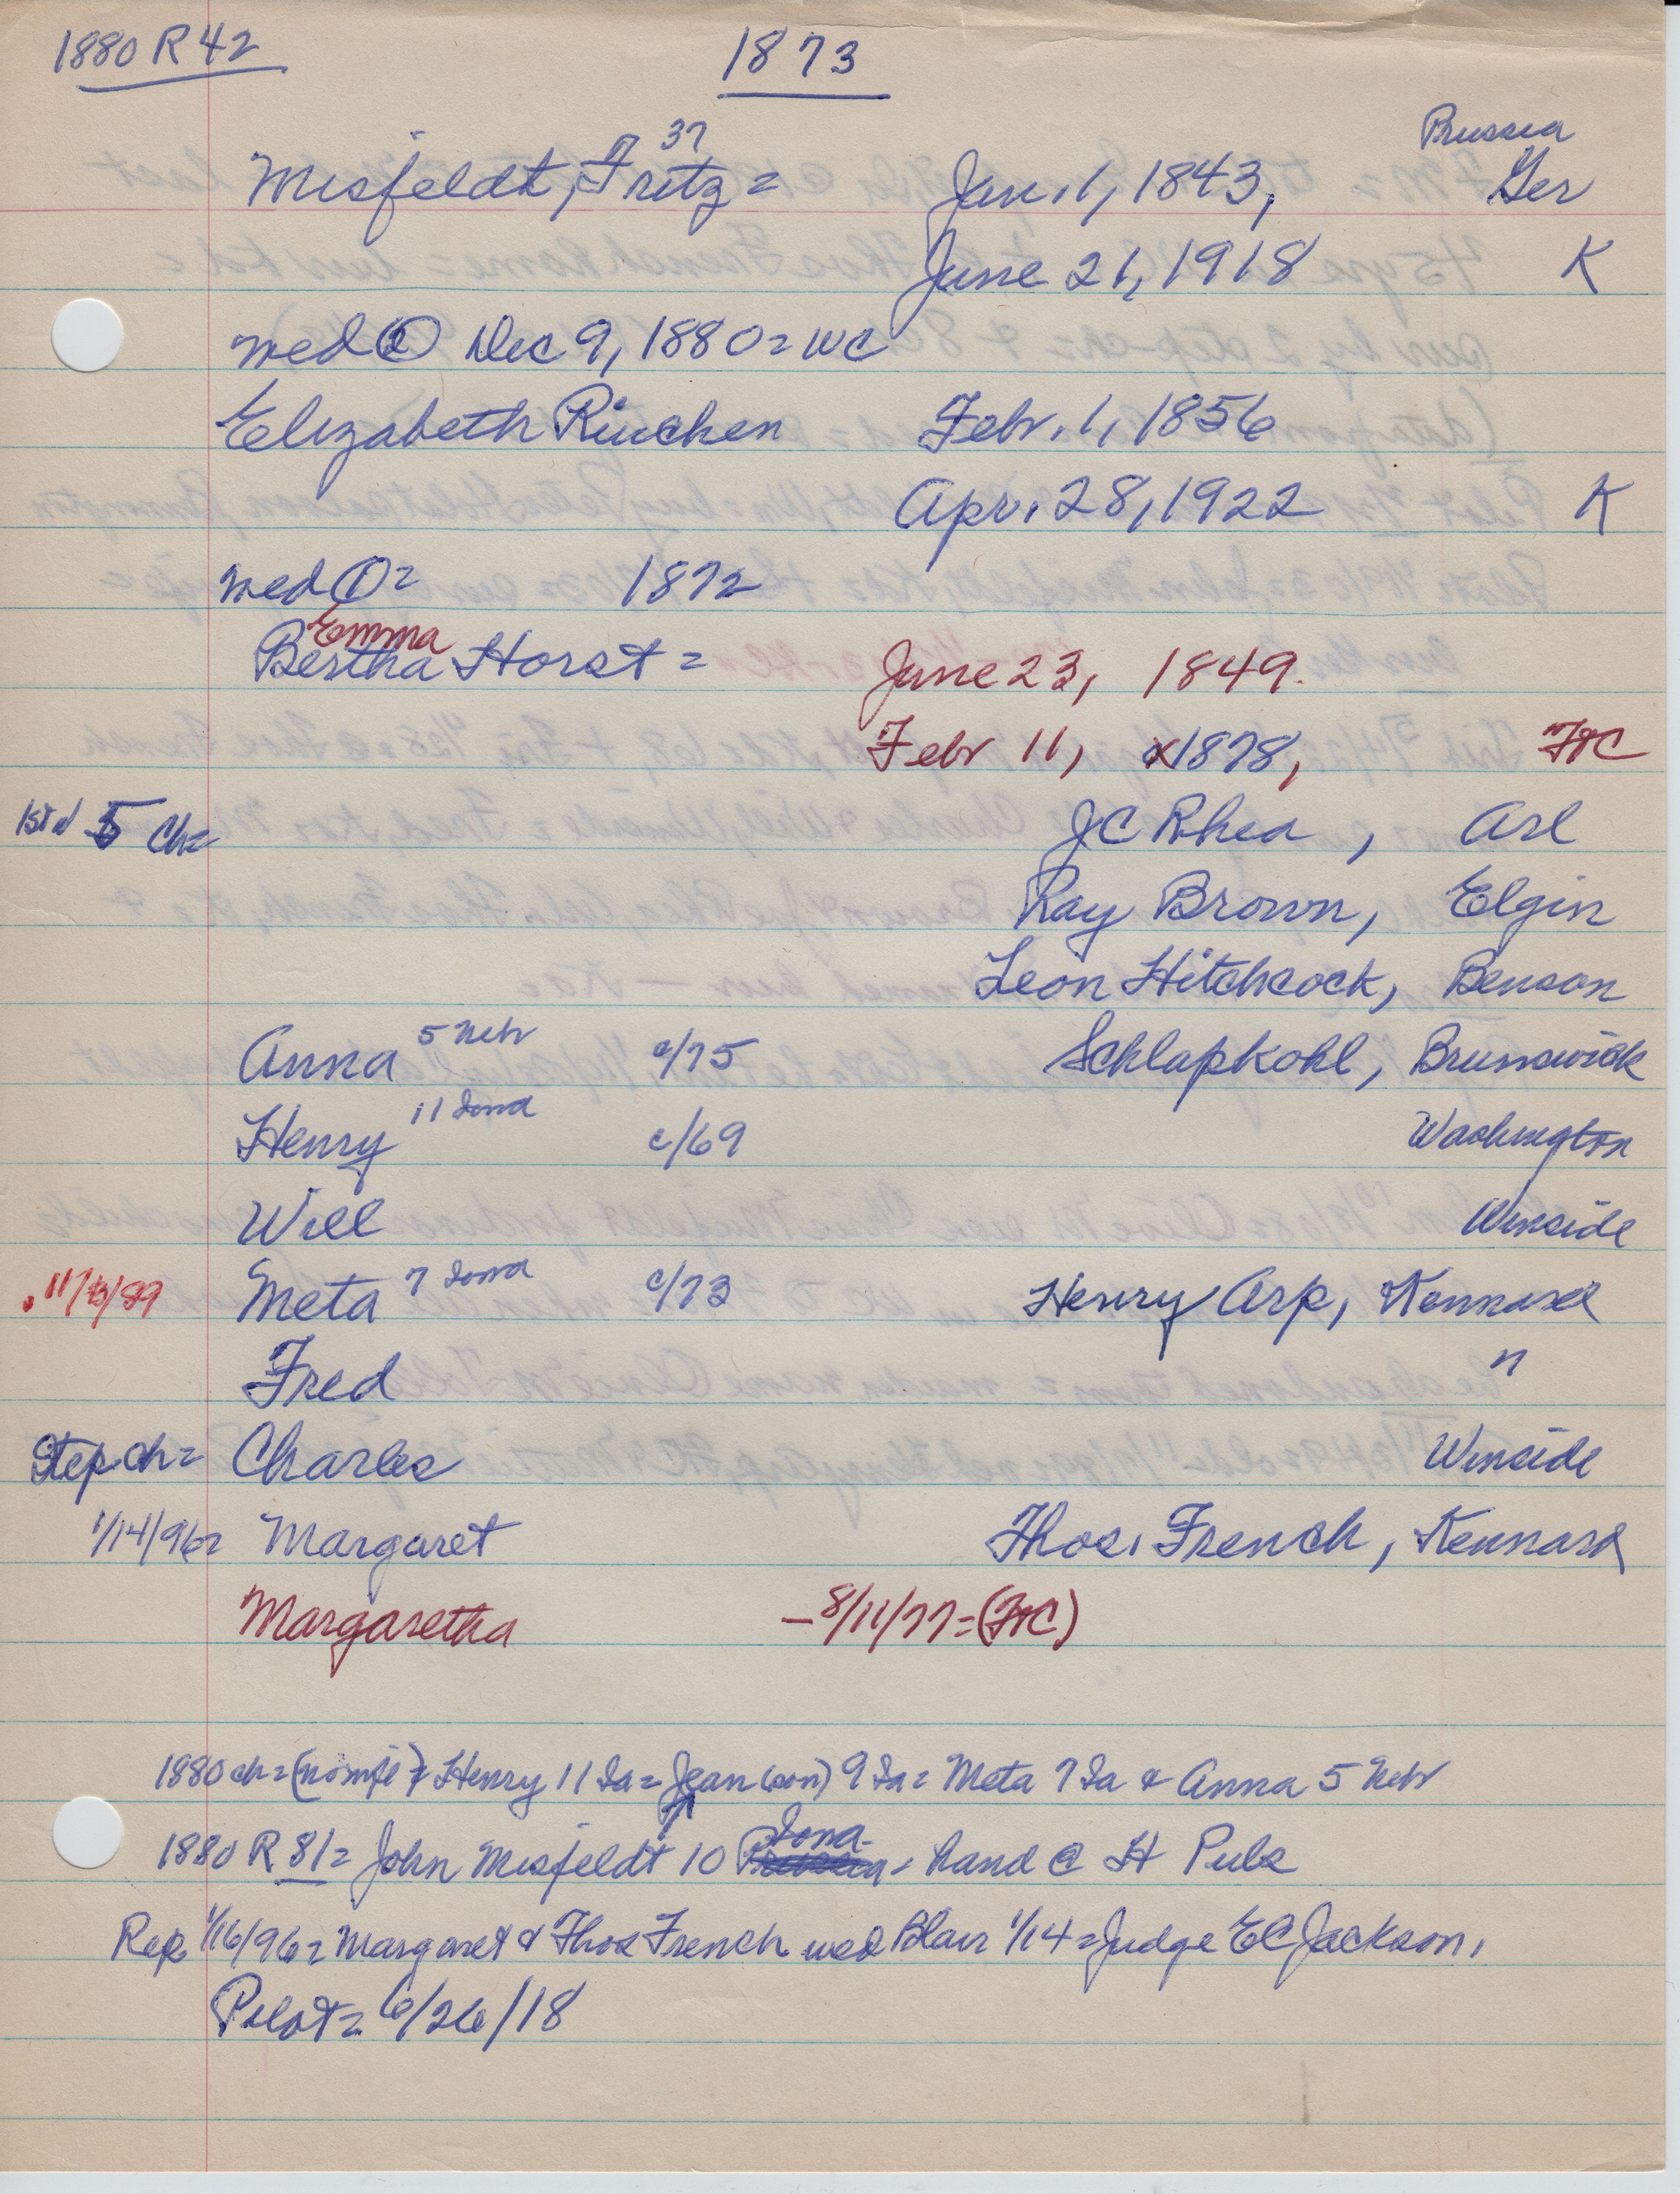 1880 R 42
1873
Prussia
37
Misfeldt, Fritz = Jan. 1, 1843, Ger
June 21, 1918 K
wed ② Dec 9, 1880 = WC
Elizabeth Riechen Febr. 1, 1856
Apr. 28, 1922 K
wed ① = 1872
Emma
Bertha Horst = June 23, 1849.
Febr 11, x1878, FtC
1st w 5 Ch= JC Rhea, Arl
Ray Brown, Elgin
Leon Hitchcock, Benson
Anna 5 Nebr c/75 Schlapkohl, Brunswick
Henry 11 Iowa c/69 Washington
Will Winside
11/13/89 Meta 7 Iowa c/73 Henry Arp, Kennard
Fred "
Step ch= Charles Winside
1/14/96= Margaret Thos. French, Kennard
Margaretha - 8/11/77 = (FtC)
1880 ch = (no wife) & Henry 11 Ia = Jean (son) 9 Ia = Meta 7 Ia & Anna 5 Nebr
1880 R 81 = John Misfeldt 10 Iowa = hand @ H Puls
Rep 1/16/96 = Margaret & Thos French wed Blair 1/14 = Judge EC Jackson,
Pilot = 6/26/18